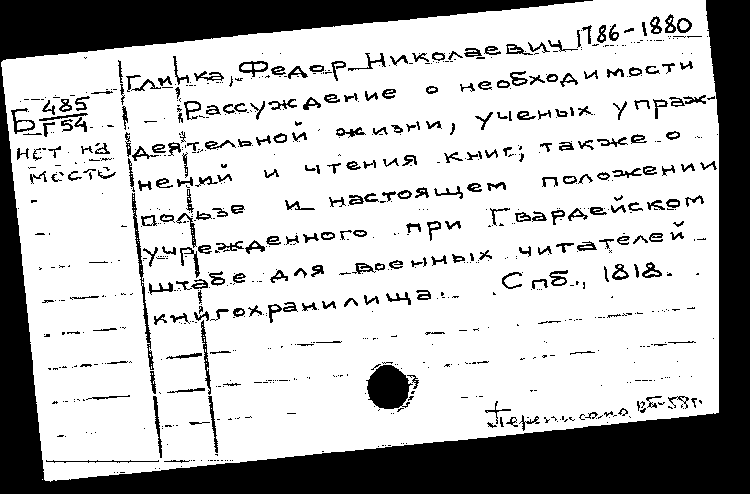 Глинка, Федор Николаевич 1786-1880
Б 485
Г54
нет на
месте
Рассуждение о необходимости
деятельной жизни, ученых упраж-
нений и чтения книг; также о
пользе и настоящем положении
учрежденного при Гвардейском
штабе для военных читателей
книгохранилища. Спб., 1818.
Переписано 58 г.